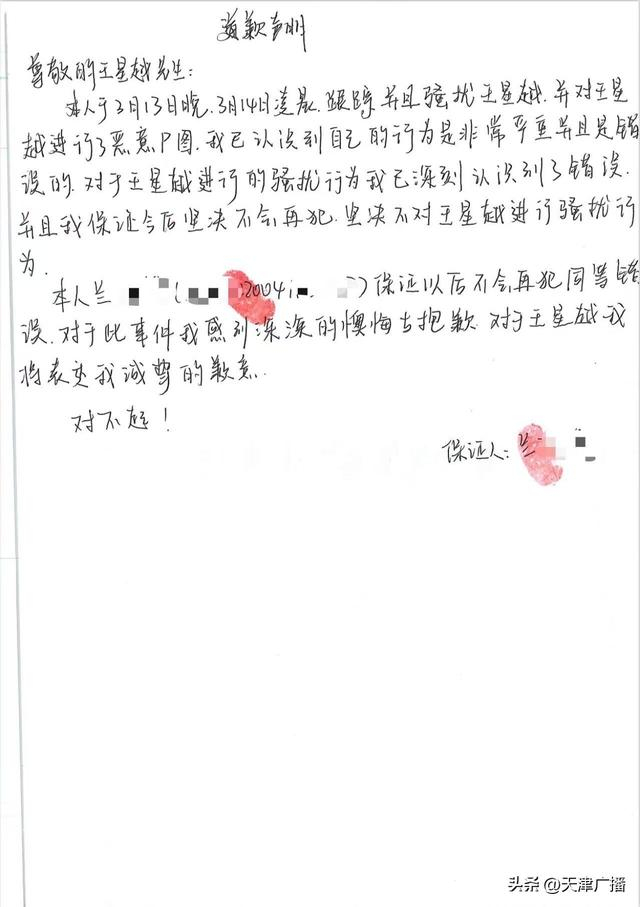 道歉声明
尊敬的王星越先生：
本人于3月13日晚，3月14日凌晨，跟踪并且骚扰王星越，并对王星
越进行了恶意P图，我已认识到自己的行为是非常严重并且是错
误的，对于王星越进行的骚扰行为我已深刻认识到了错误，
并且我保证今后坚决不会再犯，坚决不对王星越进行骚扰行
为。
本人兰 ( 2004 )保证以后不会再犯同等错
误，对于此事件我感到深深的懊悔与抱歉，对于王星越我
将表达我诚挚的歉意
对不起！
保证人：兰
头条@天津广播